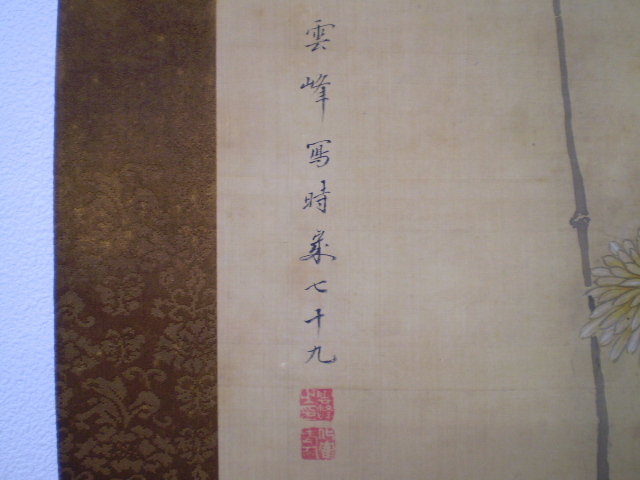 雲峰寫時年七十九